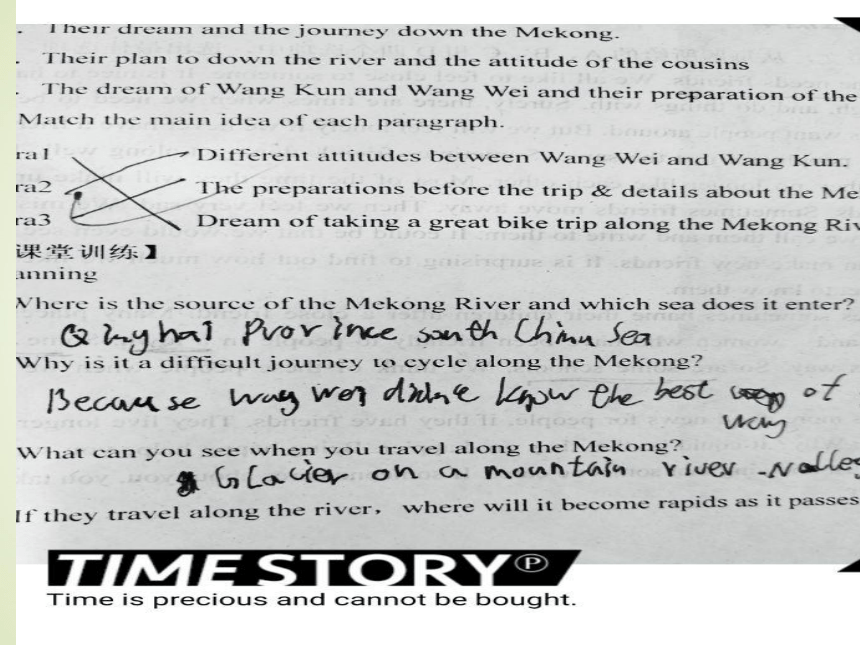 . Their dream and the journey down the Mekong.
. Their plan to down the river and the attitude of the cousins
. The dream of Wang Kun and Wang Wei and their preparation of the
Match the main idea of each paragraph.
ra1 Different attitudes between Wang Wei and Wang Kun.
ra2 The preparations before the trip & details about the Me
ra3 Dream of taking a great bike trip along the Mekong Riv
课堂训练】
anning
Where is the source of the Mekong River and which sea does it enter?
Qinghai Province south China Sea
Why is it a difficult journey to cycle along the Mekong?
Because way wei didn't know the best of
way
What can you see when you travel along the Mekong?
Glacier on a mountain river valley
If they travel along the river, where will it become rapids as it passes
TIME STORY℗
Time is precious and cannot be bought.